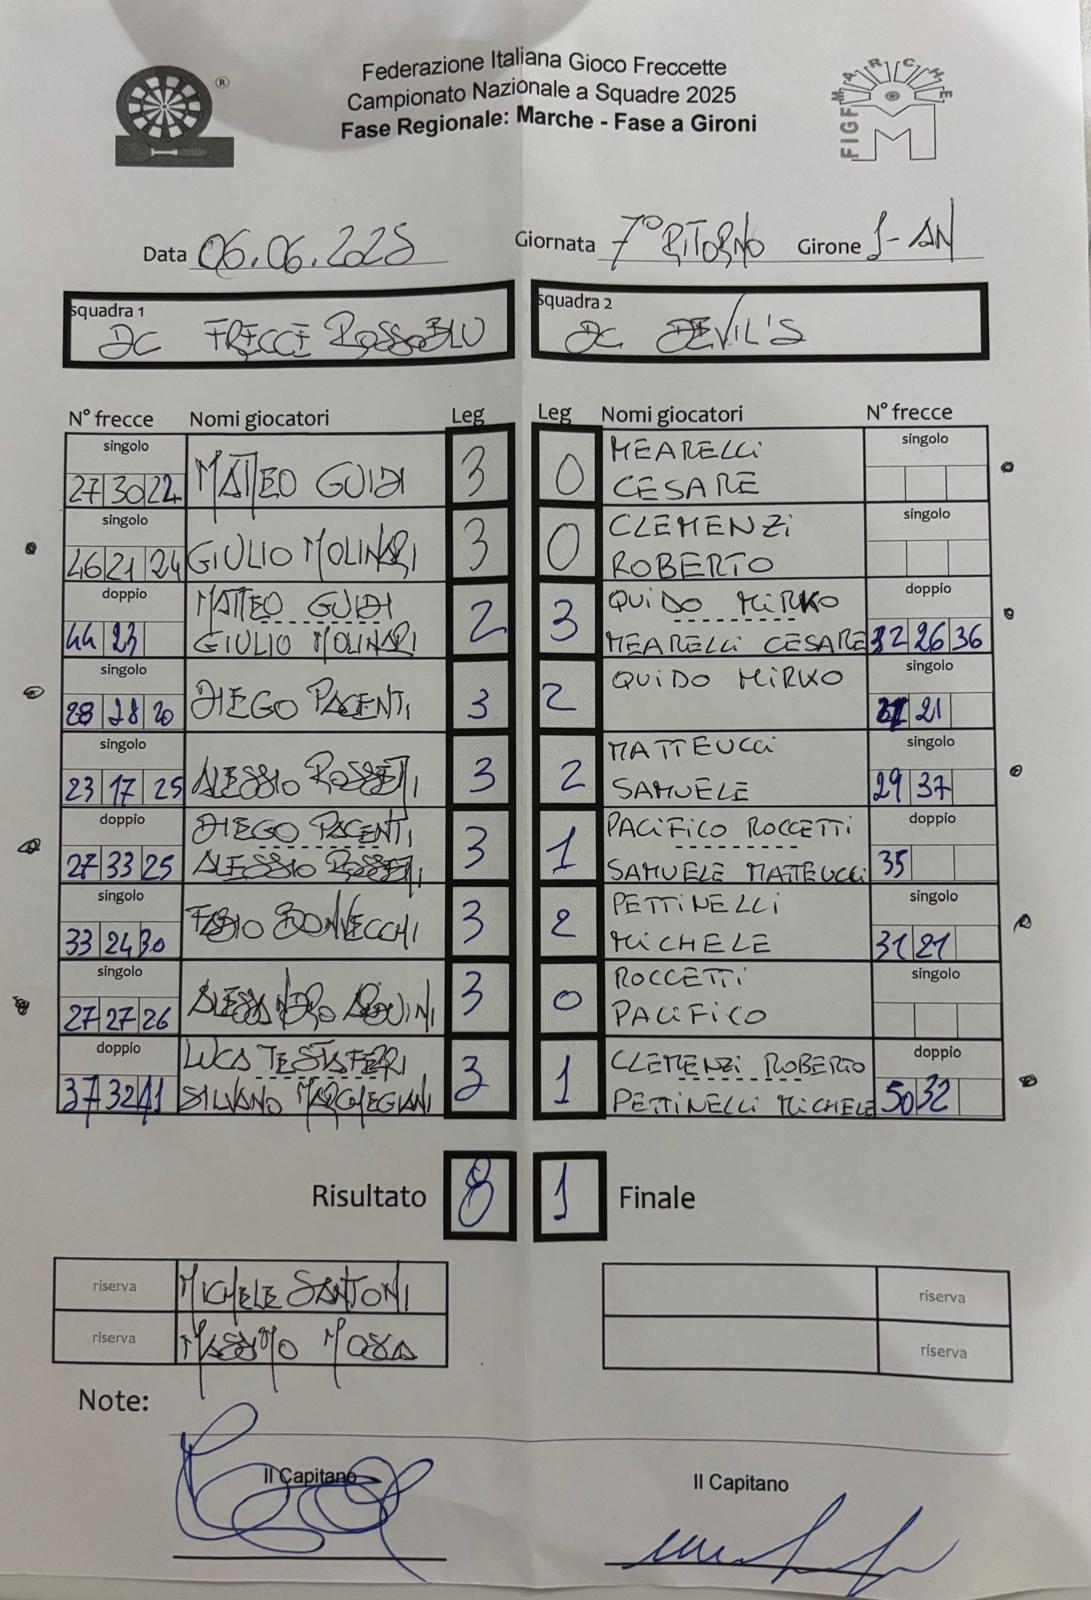 Federazione Italiana Gioco Freccette
Campionato Nazionale a Squadre 2025
Fase Regionale: Marche - Fase a Gironi
®
MARCHE
FIGF
M
Data 06.06.2025 Giornata 7° RITORNO Girone 1-AN
squadra 1 squadra 2
DC FRECCE ROSSOBLU DC DEVIL'S
N° frecce Nomi giocatori Leg Leg Nomi giocatori N° frecce
singolo MEARELLI singolo
27 30 22 MATTEO GUIDI 3 0 CESARE
singolo CLEMENZI singolo
46 21 24 GIULIO MOLINARI 3 0 ROBERTO
doppio MATTEO GUIDI QUIDO MIRKO doppio
44 23 GIULIO MOLINARI 2 3 MEARELLI CESARE 32 26 36
singolo QUIDO MIRKO singolo
28 28 20 DIEGO PACENTI 3 2 21
singolo MATTEUCCI singolo
23 17 25 ALESSIO ROSSETTI 3 2 SAMUELE 29 37
doppio DIEGO PACENTI PACIFICO ROCCETTI doppio
27 33 25 ALESSIO ROSSETTI 3 1 SAMUELE MATTEUCCI 35
singolo PETTINELLI singolo
33 24 30 FABIO BONVECCHI 3 2 MICHELE 31 21
singolo ROCCETTI singolo
27 27 26 ALESSANDRO AQUINI 3 0 PACIFICO
doppio LUCA TESTAFERRI CLEMENZI ROBERTO doppio
37 32 41 SILVANO MARCHEGIANI 3 1 PETTINELLI MICHELE 50 32
Risultato 8 1 Finale
riserva MICHELE SANTONI riserva
riserva MASSIMO MOSCA riserva
Note:
Il Capitano Il Capitano